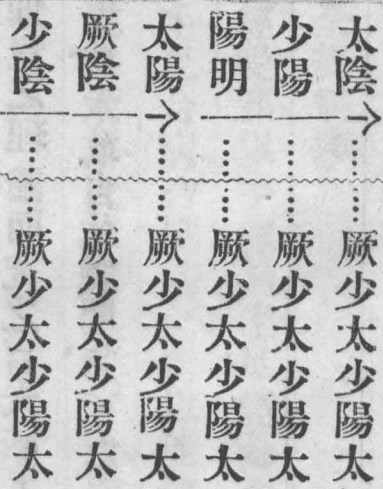 太陰……厥少太少陽太
少陽……厥少太少陽太
陽明……厥少太少陽太
太陽……厥少太少陽太
厥陰……厥少太少陽太
少陰……厥少太少陽太